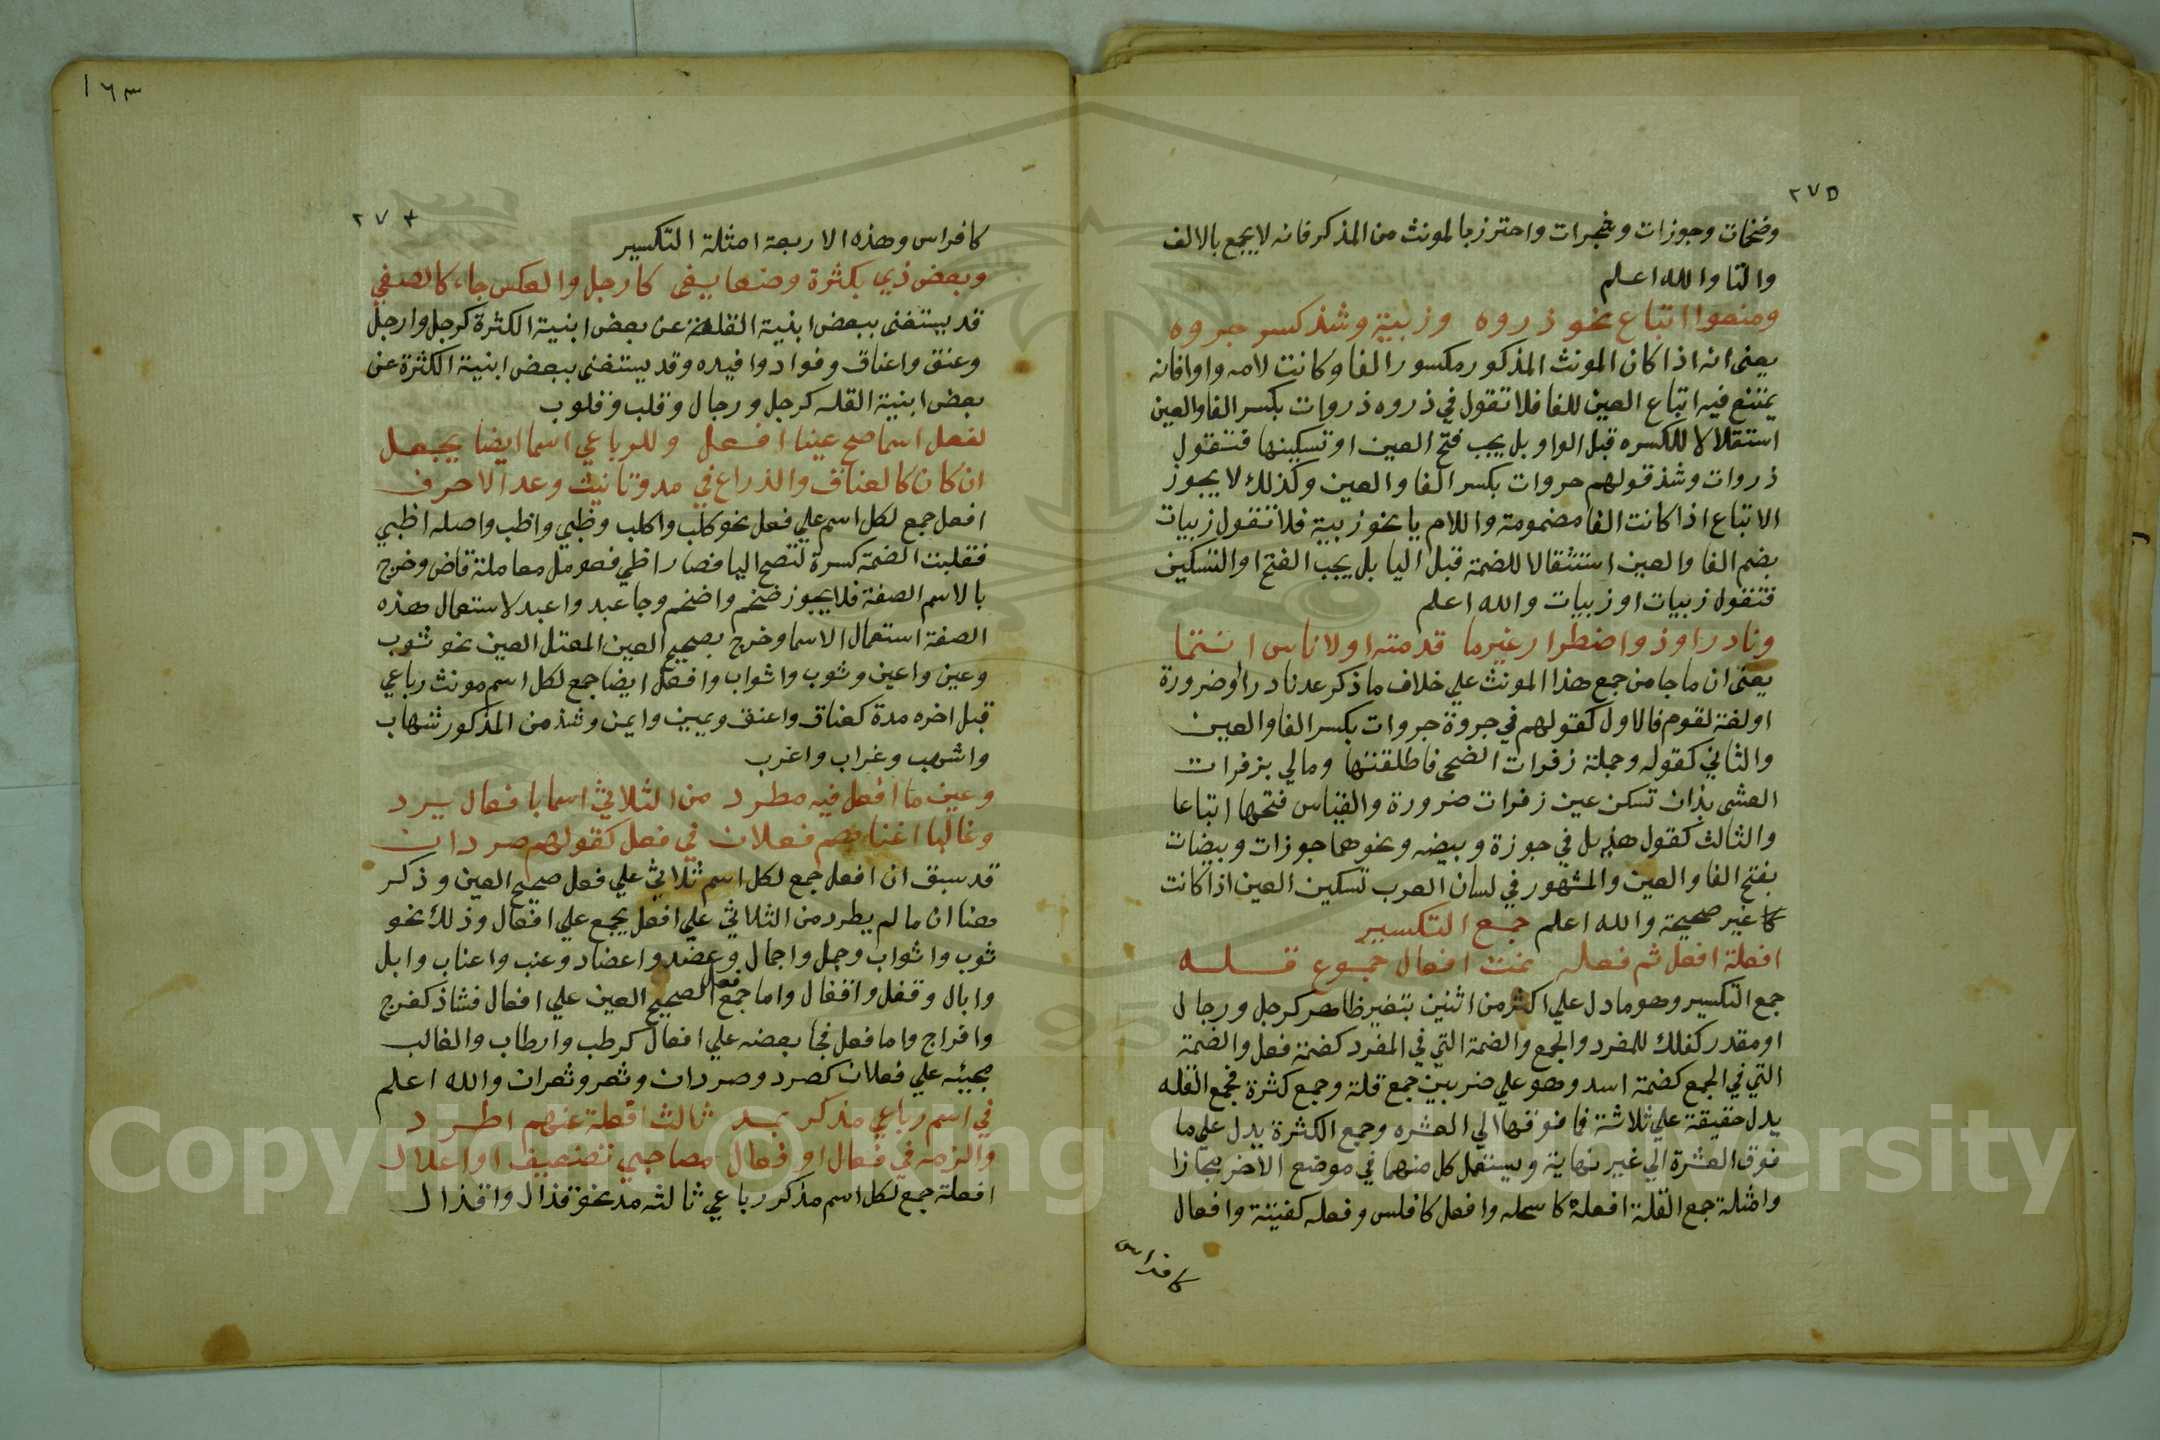 ٢٧٥
وضخمات وجوزات وشجرات واحترز بالمونث من المذكر فانه لا يجمع بالالف
والتا والله اعلم
ومنعوا اتباع نحو ذروه وزبية وشذ كسر جروه
يعنى انه اذا كان المونث المذكور مكسور الفا وكانت لامه واوا فانه
يمتنع فيه اتباع العين للفا فلا تقول في ذروه ذروات بكسر الفا والعين
استقلالا للكسره قبل الواو بل يجب فتح العين او تسكينها فتقول
ذروات وشذ قولهم جروات بكسر الفا والعين وكذلك لا يجوز
الاتباع اذا كانت الفا مضمومة واللام يا نحو زبية فلا تقول زبيات
بضم الفا والعين استثقالا للضمة قبل اليا بل يجب الفتح او التسكين
فتقول زبيات او زبيات والله اعلم
ونادر اوذو اضطرار غير ما قدمته اولاناس انتما
يعنى ان ما جا من جمع هذا المونث علي خلاف ما ذكر عد نادرا وضرورة
او لغة لقوم فالاول كقولهم في جروة جروات بكسر الفا والعين
والثاني كقوله وحملة زفرات الضحى فاطلقتها ومالي بزفرات
العشي يدان تسكن عين زفرات ضرورة والقياس فتحها اتباعا
والثالث كقول هذيل في جوزة وبيضه ونحوهما جوزات وبيضات
بفتح الفا والعين والمشهور في لسان العرب تسكين العين اذا كانت
كا غير صحيحة والله اعلم جمع التكسير
افعلة افعل ثم فعله ثمت افعال جموع قله
جمع التكسير وهو ما دل علي اكثر من اثنين بتغير ظاهر كرجل ورجال
او مقدر كفلك للمفرد والجمع والضمة التي في المفرد كضمة فعل والضمة
التي في الجمع كضمة اسد وهو علي ضربين جمع قلة وجمع كثرة فجمع القله
يدل حقيقة علي ثلاثة فما فوقها الي العشره وجمع الكثرة يدل علي ما
فوق العشرة الي غير نهاية ويستعمل كل منهما في موضع الاخر مجازا
وامثلة جمع القلة افعلة كاسحله وافعل كافلس وفعله كفتية وافعال
كافراس
١٦٣
٢٧٤
كافراس وهذه الاربعة امثلة التكسير
وبعض ذي بكثرة وضعا يفى كارجل والعكس جاء كالصفى
قد يستغنى ببعض ابنية القلة عن بعض ابنية الكثرة كرجل وارجل
وعنق واعناق وفواد وافيده وقد يستغنى ببعض ابنية الكثرة عن
بعض ابنية القله كرجل ورجال وقلب وقلوب
لفعل اسما صح عينا افعل وللرباعي اسما ايضا يجعل
ان كان كالعناق والذراع في مد وتانيث وعد الاحرف
افعل جمع لكل اسم علي فعل نحو كلب واكلب وظبي واظب واصله اظبي
فقلبت الضمة كسرة لتصح اليا فصار اظبي فعومل معاملة قاض وخرج
بالاسم الصفة فلا يجوز ضخم واضخم وجا عبد واعبد لاستعمال هذه
الصفة استعمال الاسما وخرج بصحيح العين المعتل العين نحو ثوب
وعين واعين وثوب واثواب وافعل ايضا جمع لكل اسم مونث رباعي
قبل اخره مدة كعناق واعنق ويمين وايمن وشذ من المذكور شهاب
واشهب وغراب واغرب
وعين ما افعل فيه مطرد من الثلاثي اسما بافعال يرد
وغالبا اغناهم فعلان في فعل كقولهم صردان
قد سبق ان افعل جمع لكل اسم ثلاثي علي فعل صحيح العين وذكر
هنا ان ما لم يطرد من الثلاثي علي افعل يجمع علي افعال وذلك نحو
ثوب واثواب وجمل واجمال وعضد واعضاد وعنب واعناب وابل
وابال وقفل واقفال واما جمع فعل الصحيح العين علي افعال فشاذ كفرج
وافراج واما فعل فجا بعضه علي افعال كرطب وارطاب والغالب
مجيئه علي فعلان كصرد وصردان ونغر ونغران والله اعلم
في اسم رباعي مذكر بمد ثالث افعلة عنهم اطرد
والزمه في فعال او فعال مصاحبي تضعيف او اعلال
افعلة جمع لكل اسم مذكر رباعي ثالثه مد نحو قذال واقذال
Copyright © King Saud University